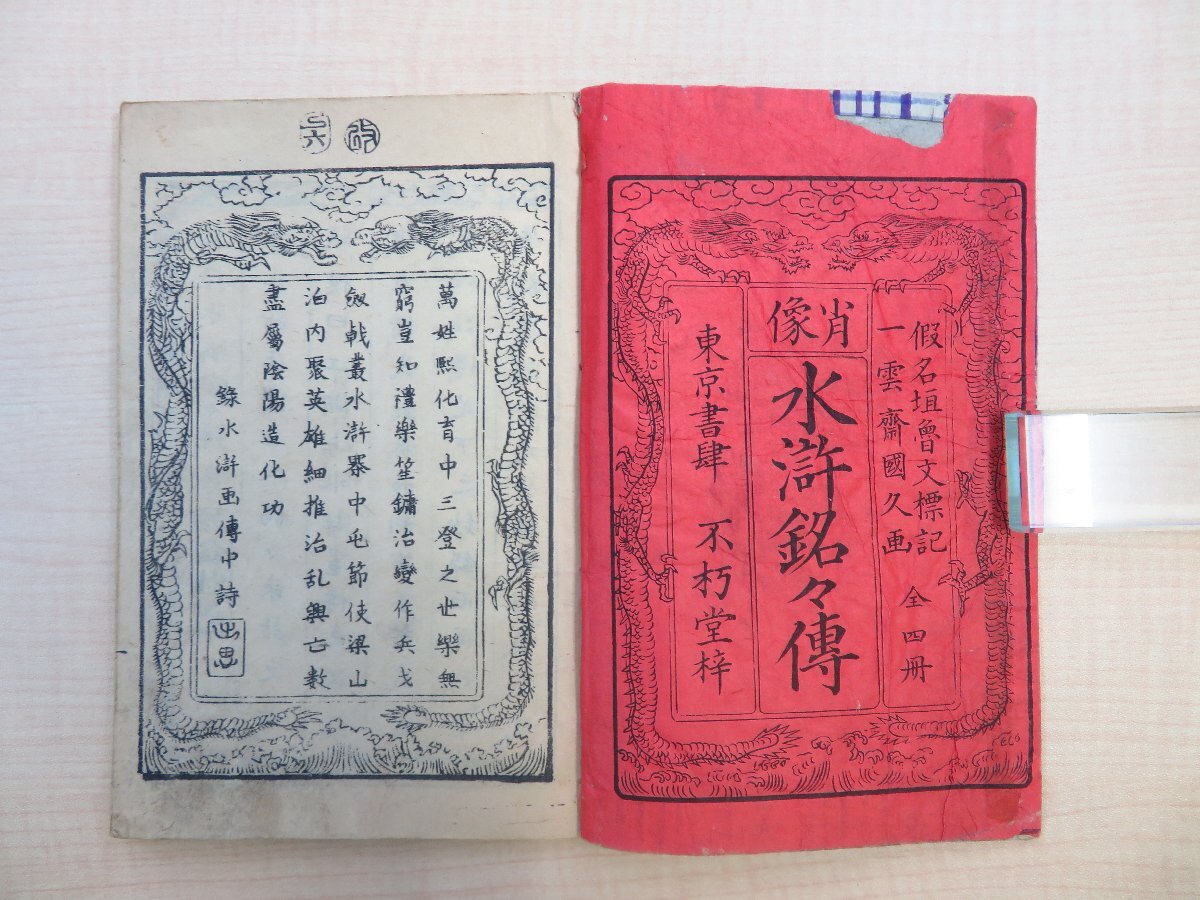 假名垣魯文標記
一雲齋國久画
全四冊
肖像
水滸銘々傳
東京書肆 不朽堂梓
改
萬姓熙化育中三登之世樂無
窮豈知禮樂笙鏞治變作兵戈
劔戟叢水滸寨中屯節使梁山
泊内聚英雄細推治乱興亡数
盡屬陰陽造化功
錄水滸画傳中詩